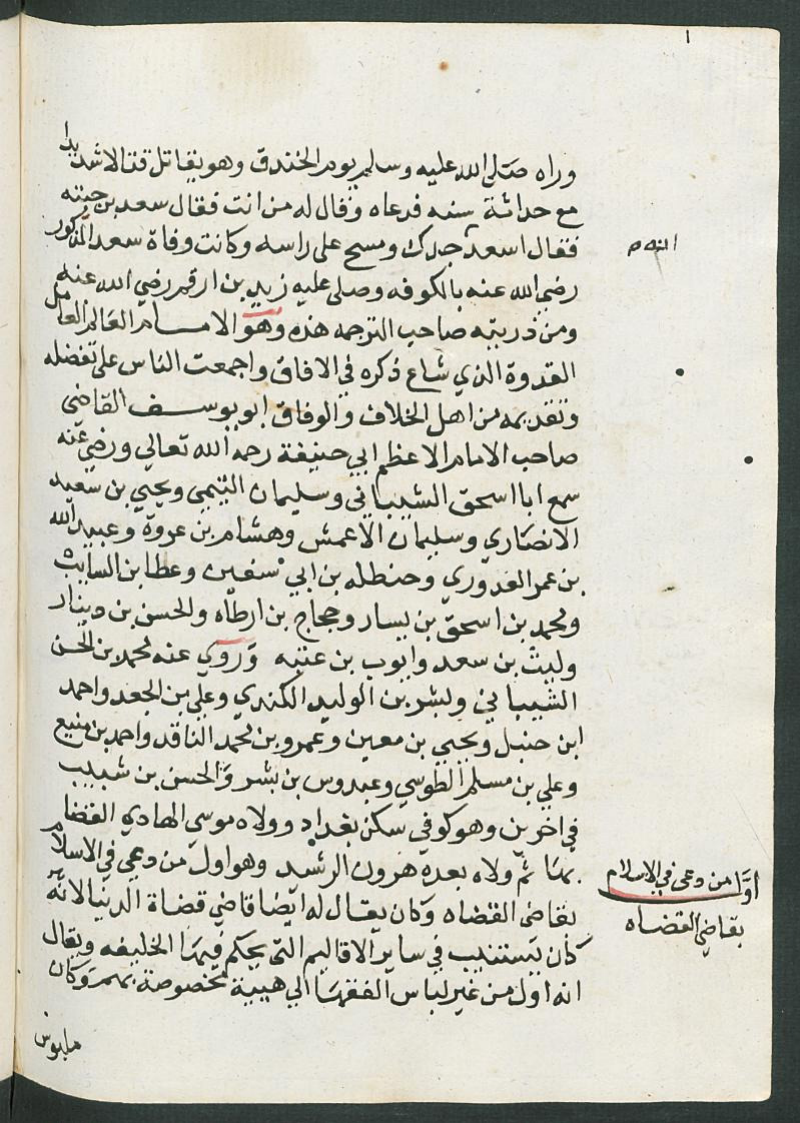 ١
وراه صلي الله عليه وسلم يوم الخندق وهو يقاتل قتالا شديدا
مع حداثة سنه فدعاه وقال له من انت فقال سعد بن حبته
فقال اسعد جدك ومسح على راسه وكانت وفاة سعد المذكور
رضي الله عنه بالكوفه وصلى عليه زيد بن ارقم رضي الله عنه
ومن ذريته صاحب الترجمه هذه وهو الامام العالم العامل
القدوة الذي شاع ذكره في الافاق واجمعت الناس على تفضله
وتقديمه من اهل الخلاف والوفاق ابو يوسف القاضي
صاحب الامام الاعظم ابي حنيفة رحمه الله تعالي ورضي عنه
سمع ابا اسحق الشيباني وسليمان التيمي ويحيي بن سعيد
الانصاري وسليمان الاعمش وهشام بن عروة وعبيد الله
بن عمر العدوري وحنطله بن ابي سفين وعطا بن السايب
ومحمد بن اسحق بن يسار وحجاج بن ارطاه والحسن بن دينار
وليث بن سعد وايوب بن عتبه وروي عنه محمد بن الحسن
الشيباني وبشر بن الوليد الكندي وعلي بن الجعد واحمد
ابن حنبل ويحيي بن معين وعمرو بن محمد الناقد واحمد بن منيع
وعلي بن مسلم الطوسي وعبدوس بن بشر والحسن بن شبيب
في اخرين وهو كوفي سكن بغداد وولاه موسي الهادي القضا
بها ثم ولاه بعده هرون الرشد وهو اول من دعي في الاسلام
بقاضي القضاه وكان يقال له ايضا قاضي قضاة الدنيا لانه
كان يستنيب في ساير الاقاليم التي يحكم فيها الخليفه ويقال
انه اول من غير لباس الفقها الي هيية مخصوصة بهم وكان
ملبوس
اول من دعى في الاسلام
بقاضي القضاه